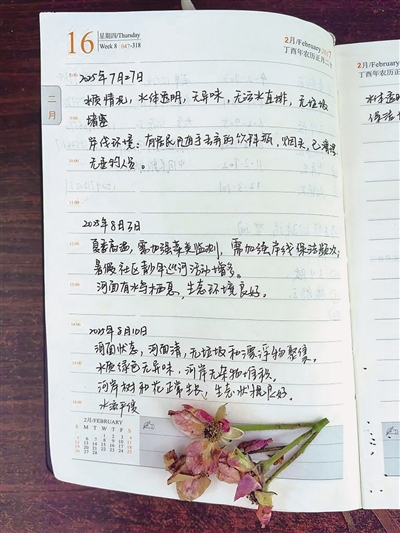 16
星期四/Thursday
Week 8 047-318
2月/February 2017
丁酉年农历正月二十
二月
2025年7月27日
水质情况，水体透明，无异味，无污水直排，无垃圾
堵塞
岸线环境：有居民随手丢弃的饮料瓶，烟头，已清理
无垂钓人员。
2025年8月3日
夏季高温，需加强藻类监测，需加强岸线保洁频次，
暑假社区青少年巡河活动增多。
河面有水鸟栖息，生态环境良好。
2025年8月10日
河面状态，河面清，无垃圾和漂浮物聚集。
水质绿色无异味，河岸无杂物堆积。
河岸树和花正常生长，生态状况良好。
2月/FEBRUARY